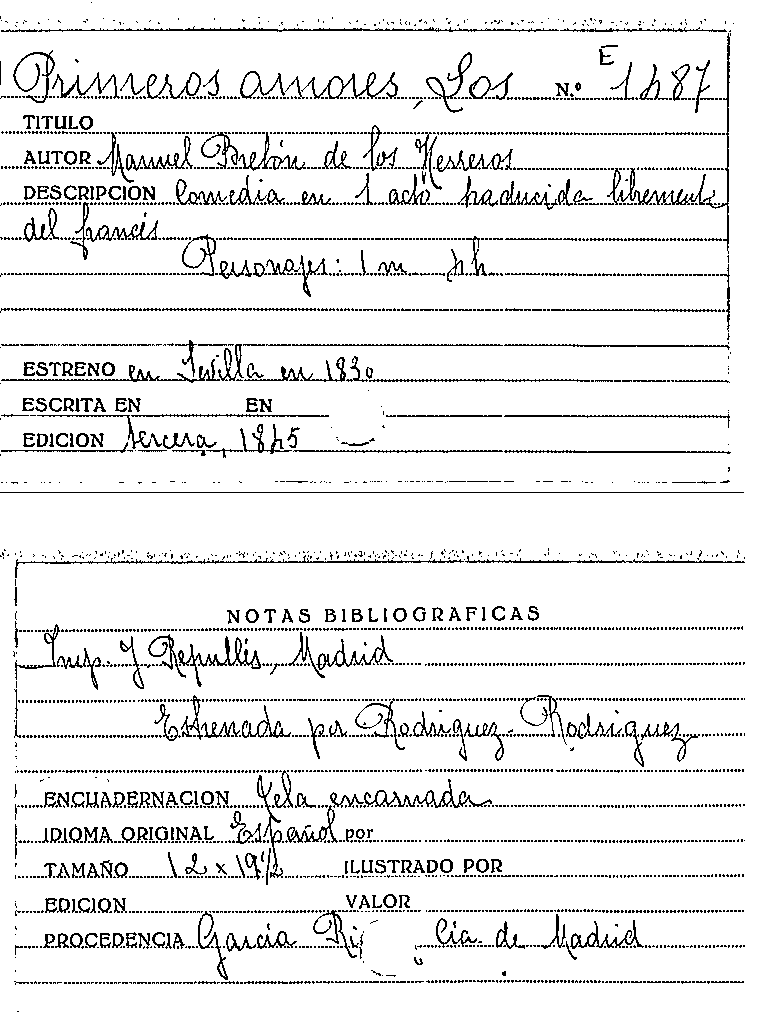 Primeros amores, Los N.º E 1487
TITULO
AUTOR Manuel Bretón de los Herreros
DESCRIPCIÓN Comedia en 1 acto traducida libremente
del francés
Personajes: 1 m 4 h
ESTRENO en Sevilla en 1830
ESCRITA EN EN
EDICION tercera, 1845
NOTAS BIBLIOGRAFICAS
Imp. J. Repullés, Madrid
Estrenada por Rodriguez-Rodriguez
ENCUADERNACION Tela encarnada
IDIOMA ORIGINAL Español por
TAMAÑO 12 x 19½ ILUSTRADO POR
EDICION VALOR
PROCEDENCIA García Cia. de Madrid